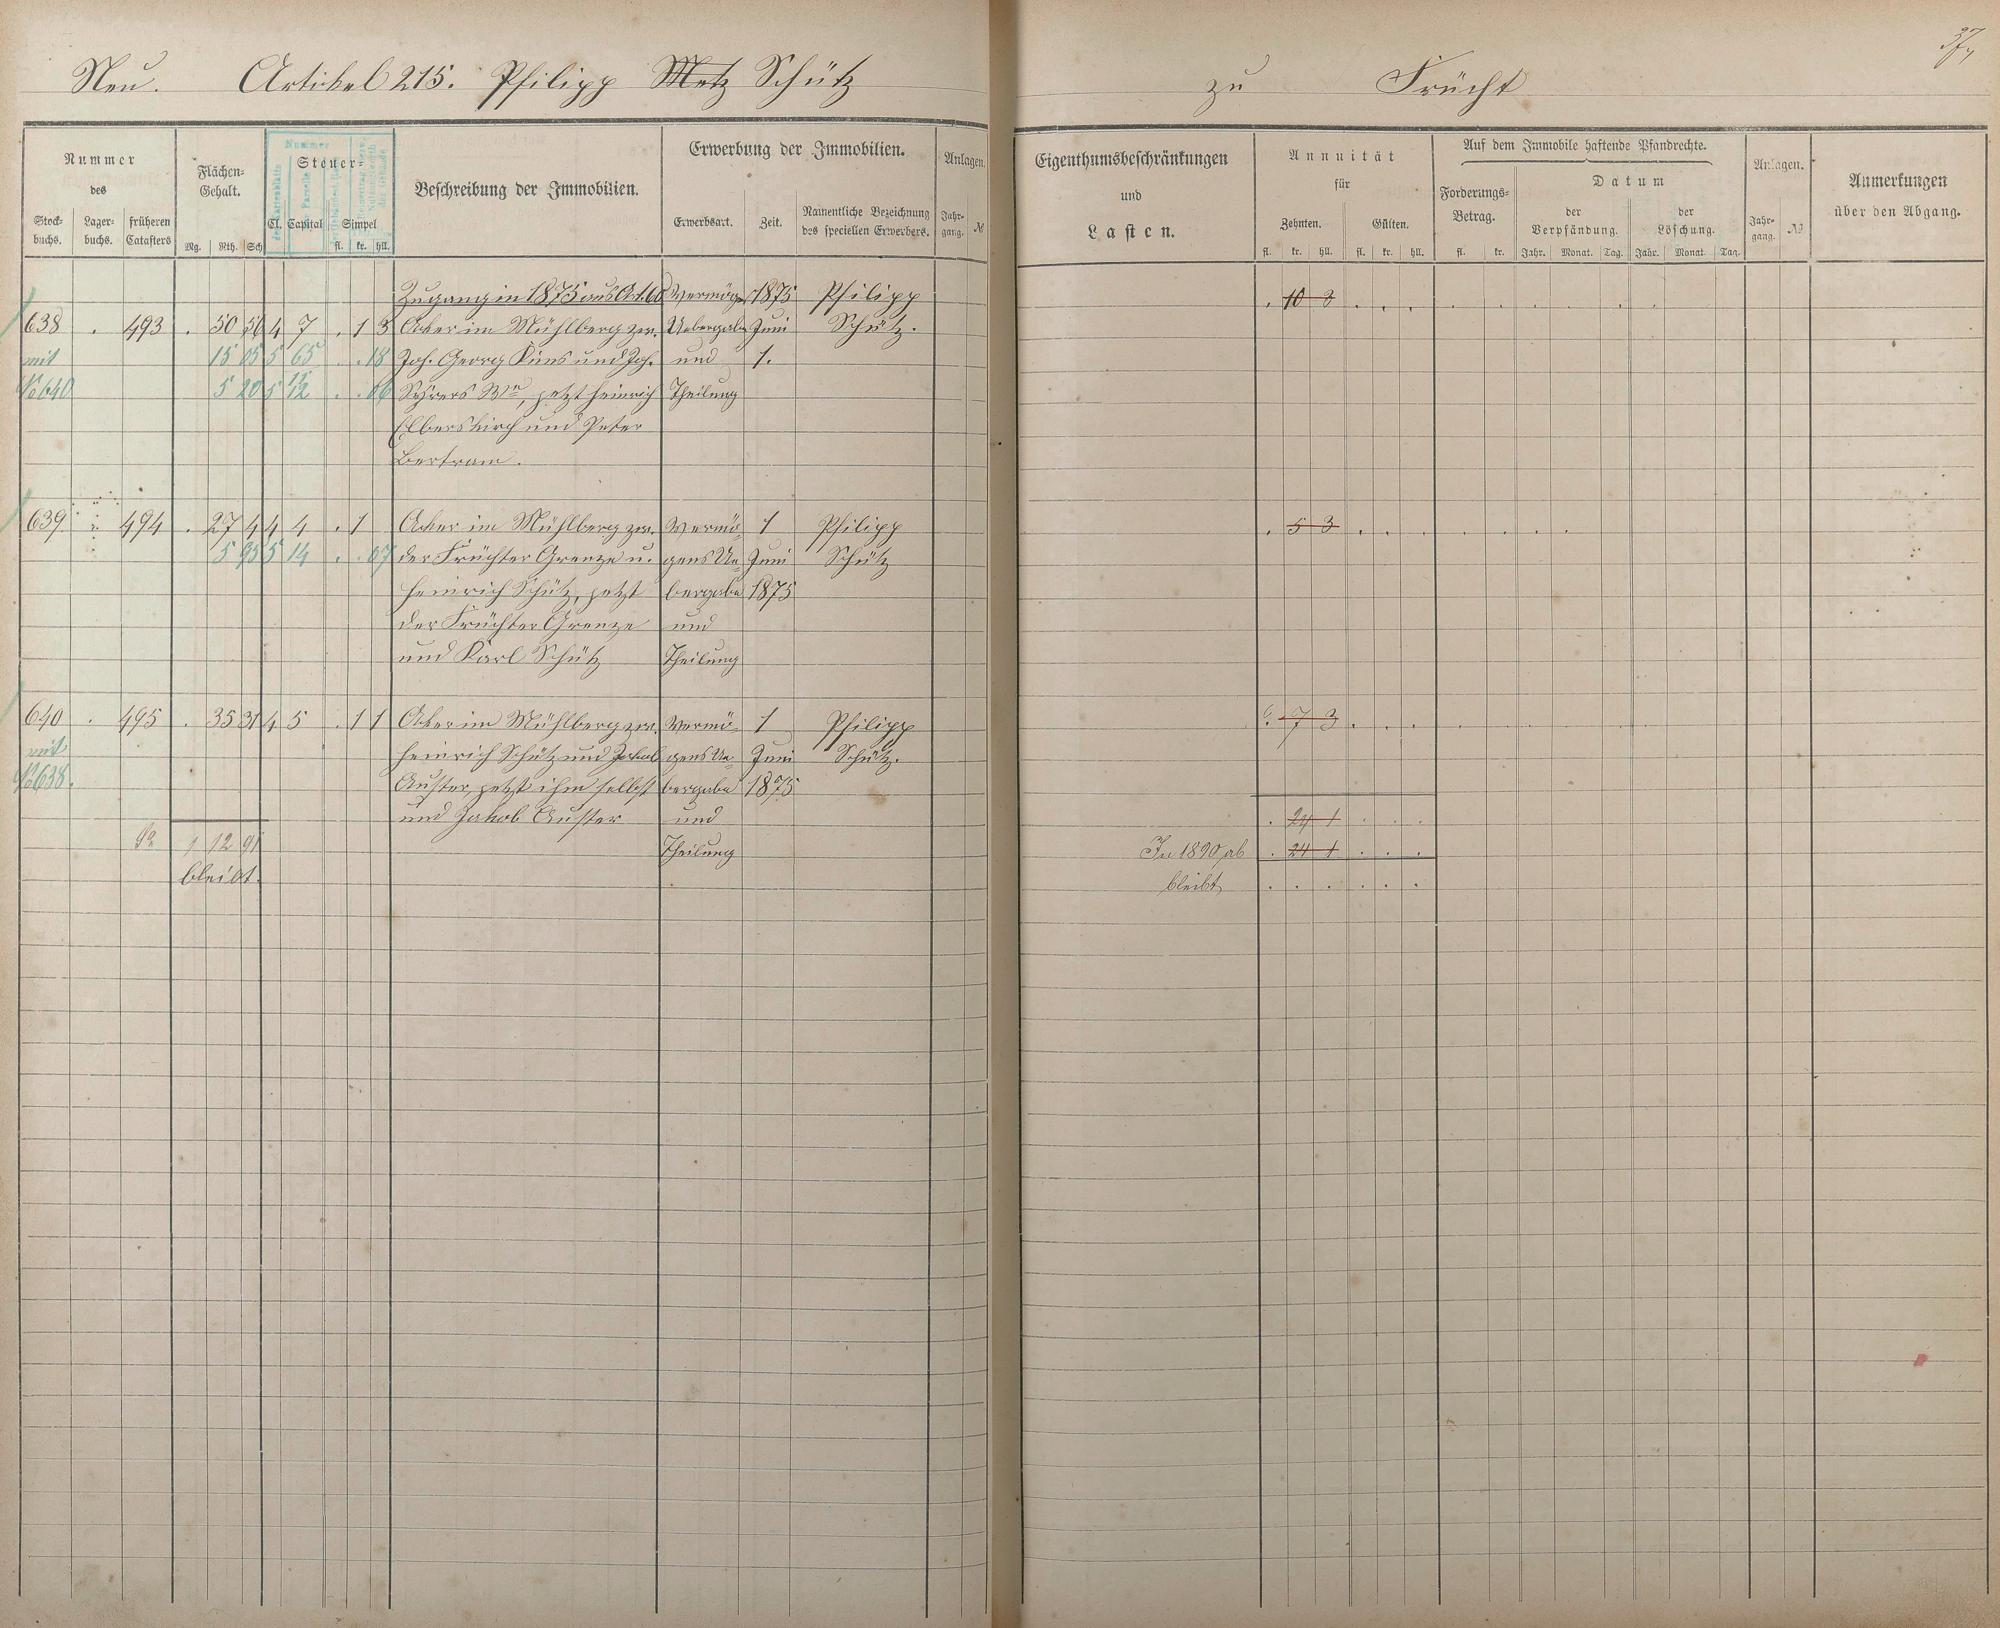 37,
Neu. Artikel 215. Philipp Metz Schütz zu Frücht
Nummer des
Stock-buchs. Lager-buchs. früheren Catasters
Flächen-Gehalt.
Mg. Rth. Sch
Steuer-
Cl. Capital Simpel
fl. kr. hll.
Nummer
Beschreibung der Immobilien.
Erwerbung der Immobilien.
Erwerbsart. Zeit. Namentliche Bezeichnung des speciellen Erwerbers.
Anlagen.
Jahr-gang. №
Eigenthumsbeschränkungen
und
Lasten.
Annuität
für
Zehnten. Gülten.
fl. kr. hll. fl. kr. hll.
Auf dem Immobile haftende Pfandrechte.
Forderungs-Betrag.
fl. kr.
Datum
der Verpfändung. der Löschung.
Jahr. Monat. Tag. Jahr. Monat. Tag.
Anlagen.
Jahr-gang. №
Anmerkungen
über den Abgang.
Zugang in 1875 aus Art. 60 Vermög. 1875 Philipp . 10 3
638 . 493 . 50 56 4 7 . 1 3 Acker im Mühlberg zw. Uebergabe Juni Schütz.
mit 15 05 5 65 . . 18 Joh. Georg Küns und Joh. und 1.
No 640 5 20 5 12 . . 06 jetzt Heinrich Theilung
Elberskirch und Peter
Bertram.
639 494 . 27 4 4 4 . 1 Acker im Mühlberg zw. Vermö- 1 Philipp . 5 3
5 95 5 14 . . 07 der Früchter Grenze u. gens Ue- Juni Schütz
Heinrich Schütz, jetzt bergabe 1875
der Früchter Grenze und
und Karl Schütz Theilung
640 . 495 . 35 31 4 5 . 1 1 Acker im Mühlberg zw. Vermö- 1 Philipp . 7 3
mit Heinrich Schütz und Jakob gens Ue- Juni Schütz.
No 638. Auster, jetzt ihm selbst bergabe 1875
und Jakob Auster und . 24 1
Sa 1 12 91 Theilung In 1890 ab . 24 1
bleibt. bleibt